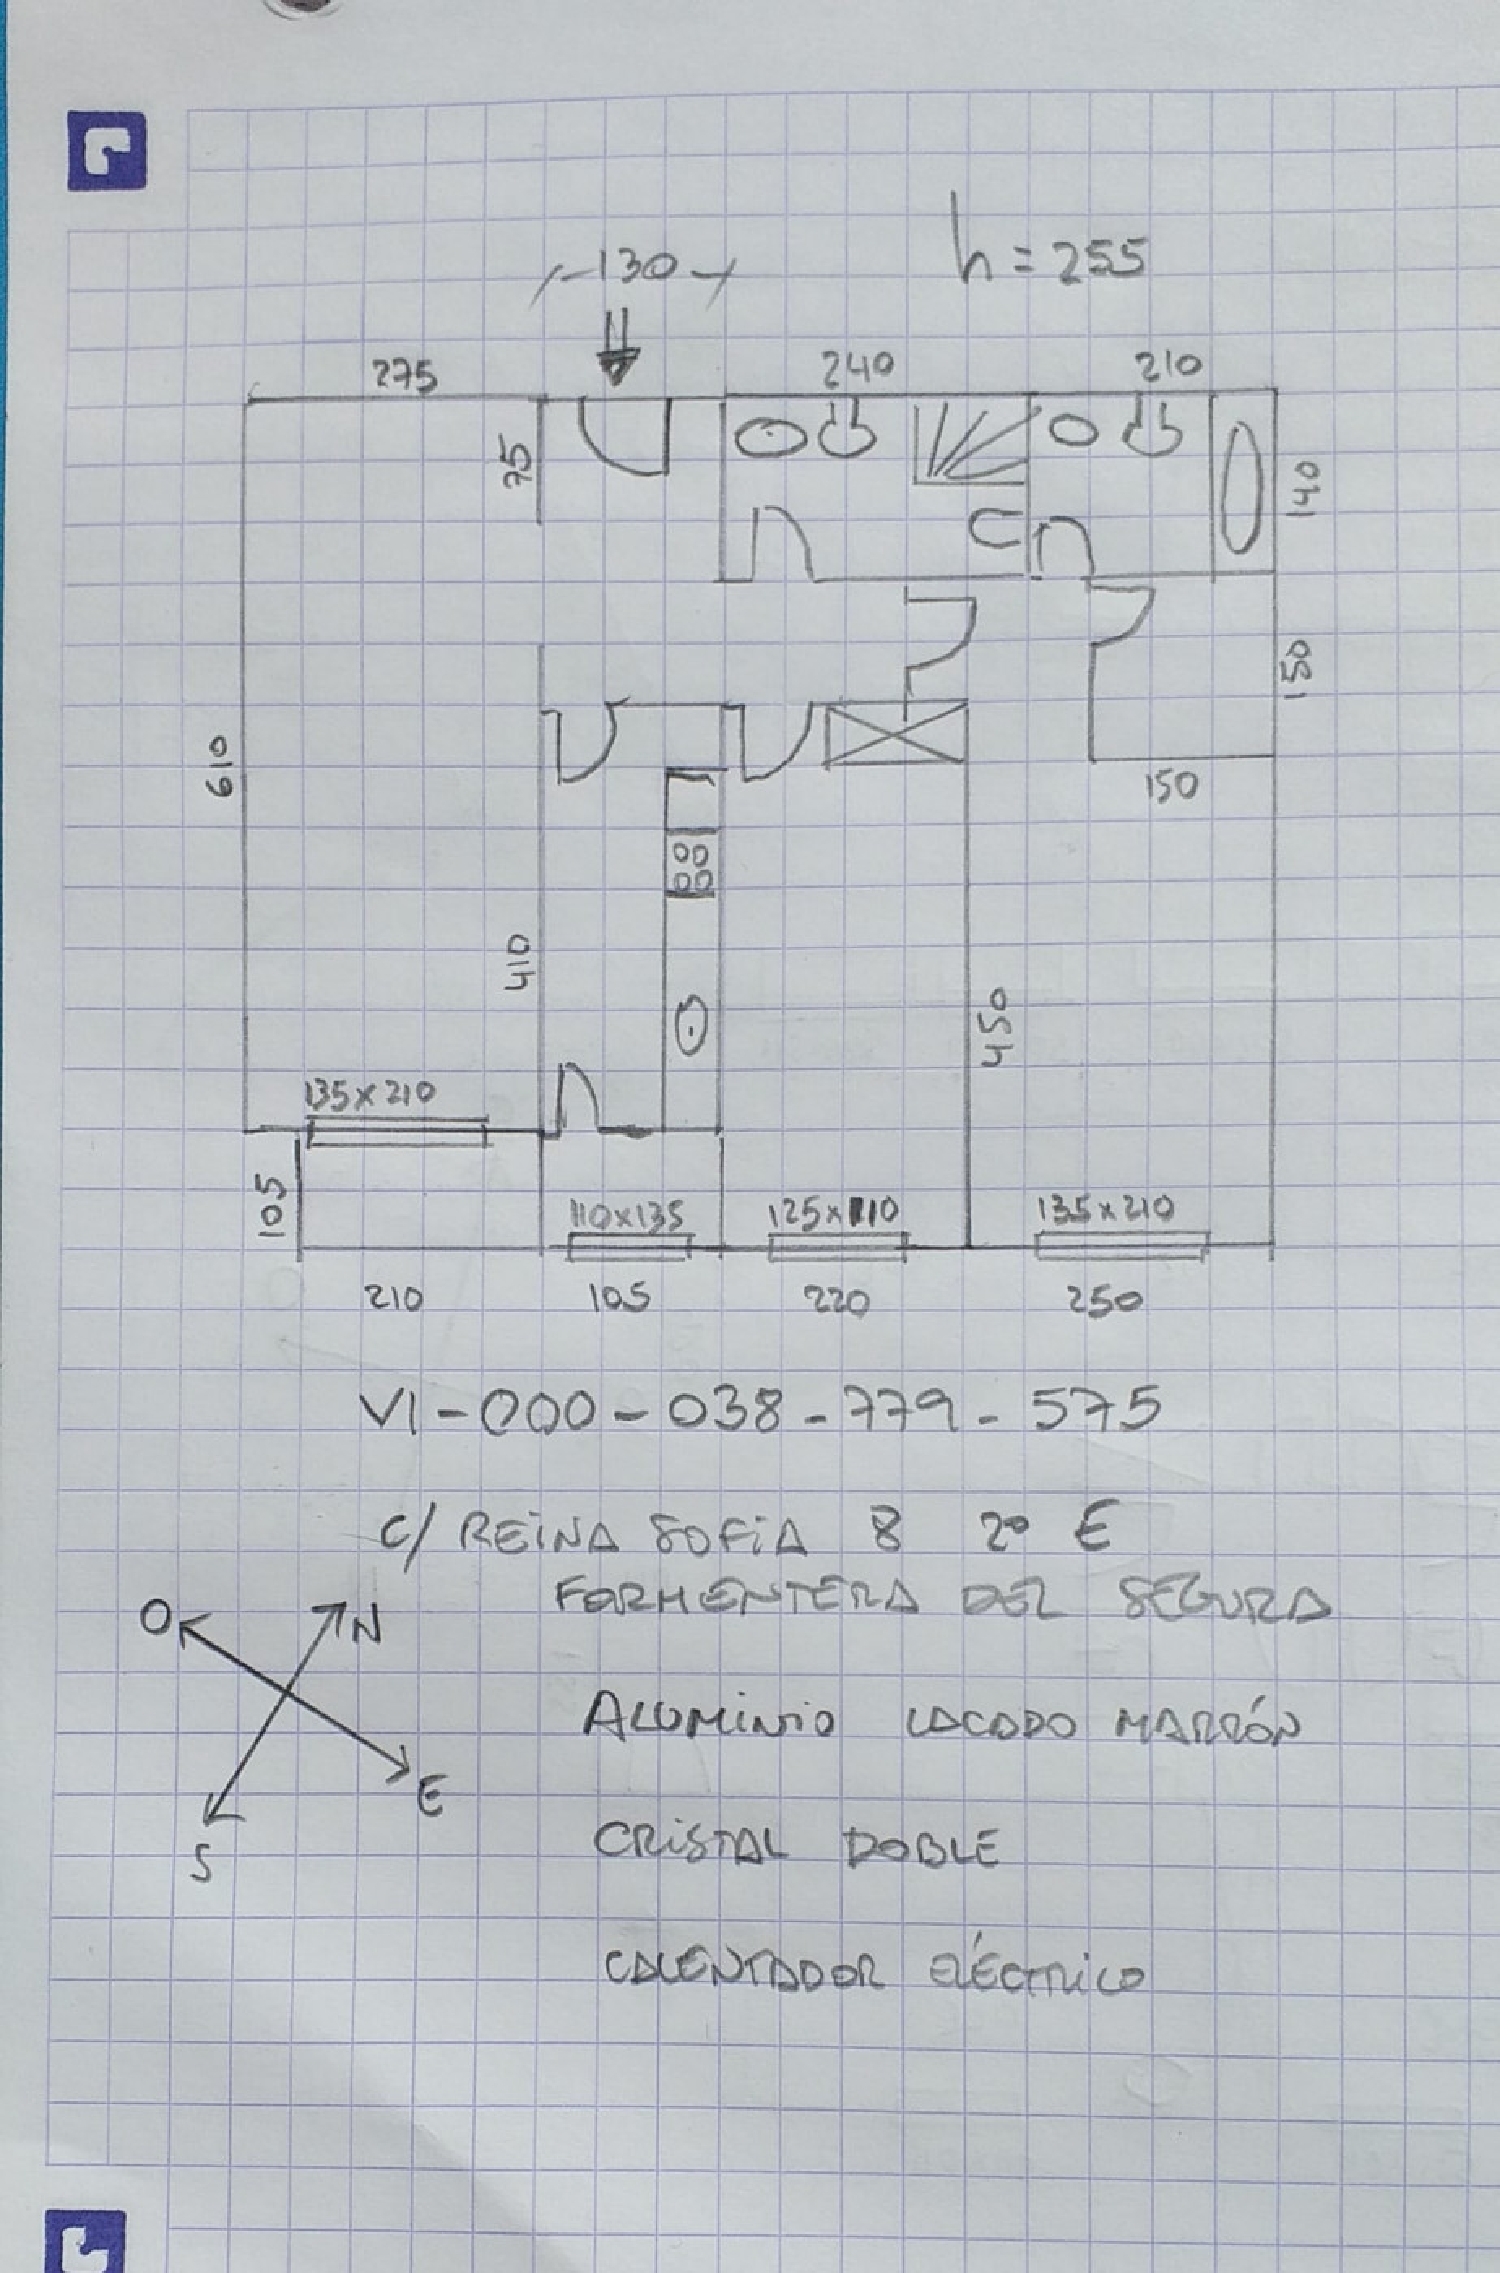 130
h = 255
275
240
210
75
140
150
610
150
410
450
135 x 210
105
110 x 135
135 x 210
210
105
220
250
VI - 000 - 038 - 779 - 575
C/ REINA SOFIA 8 2º E
FORMENTERA DEL SEGURA
O
N
ALUMINIO LACADO MARRÓN
E
CRISTAL DOBLE
S
CALENTADOR ELÉCTRICO